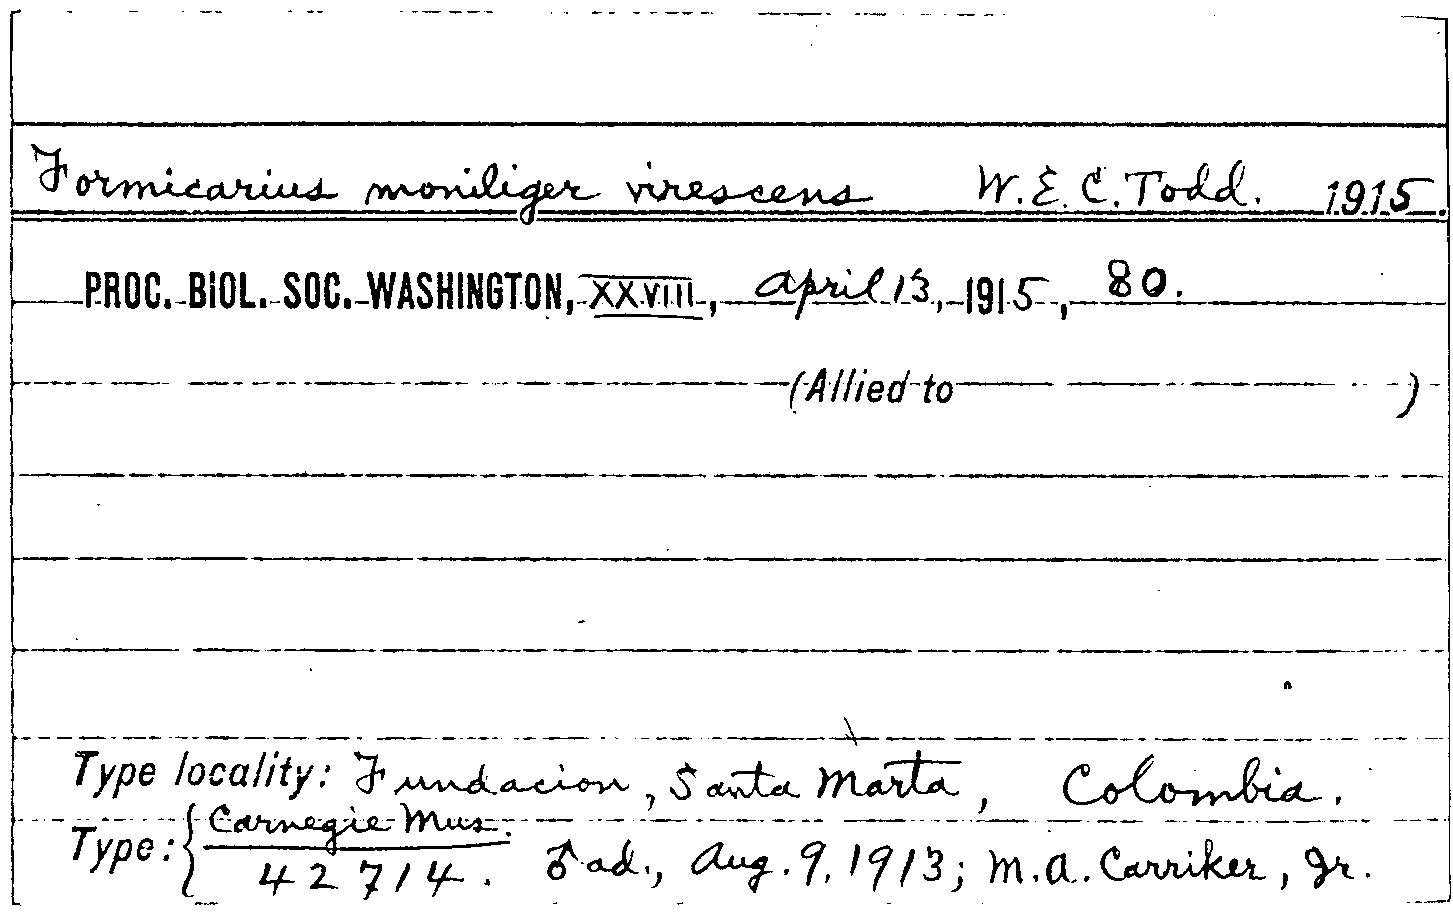 Formicarius moniliger virescens W. E. C. Todd. 1915.
PROC. BIOL. SOC. WASHINGTON, XXVIII, April 13, 1915, 80.
(Allied to )
Type locality: Fundacion, Santa Marta, Colombia.
Type: { Carnegie Mus.
42714. ♂ ad., Aug. 9, 1913; M. A. Carriker, Jr.